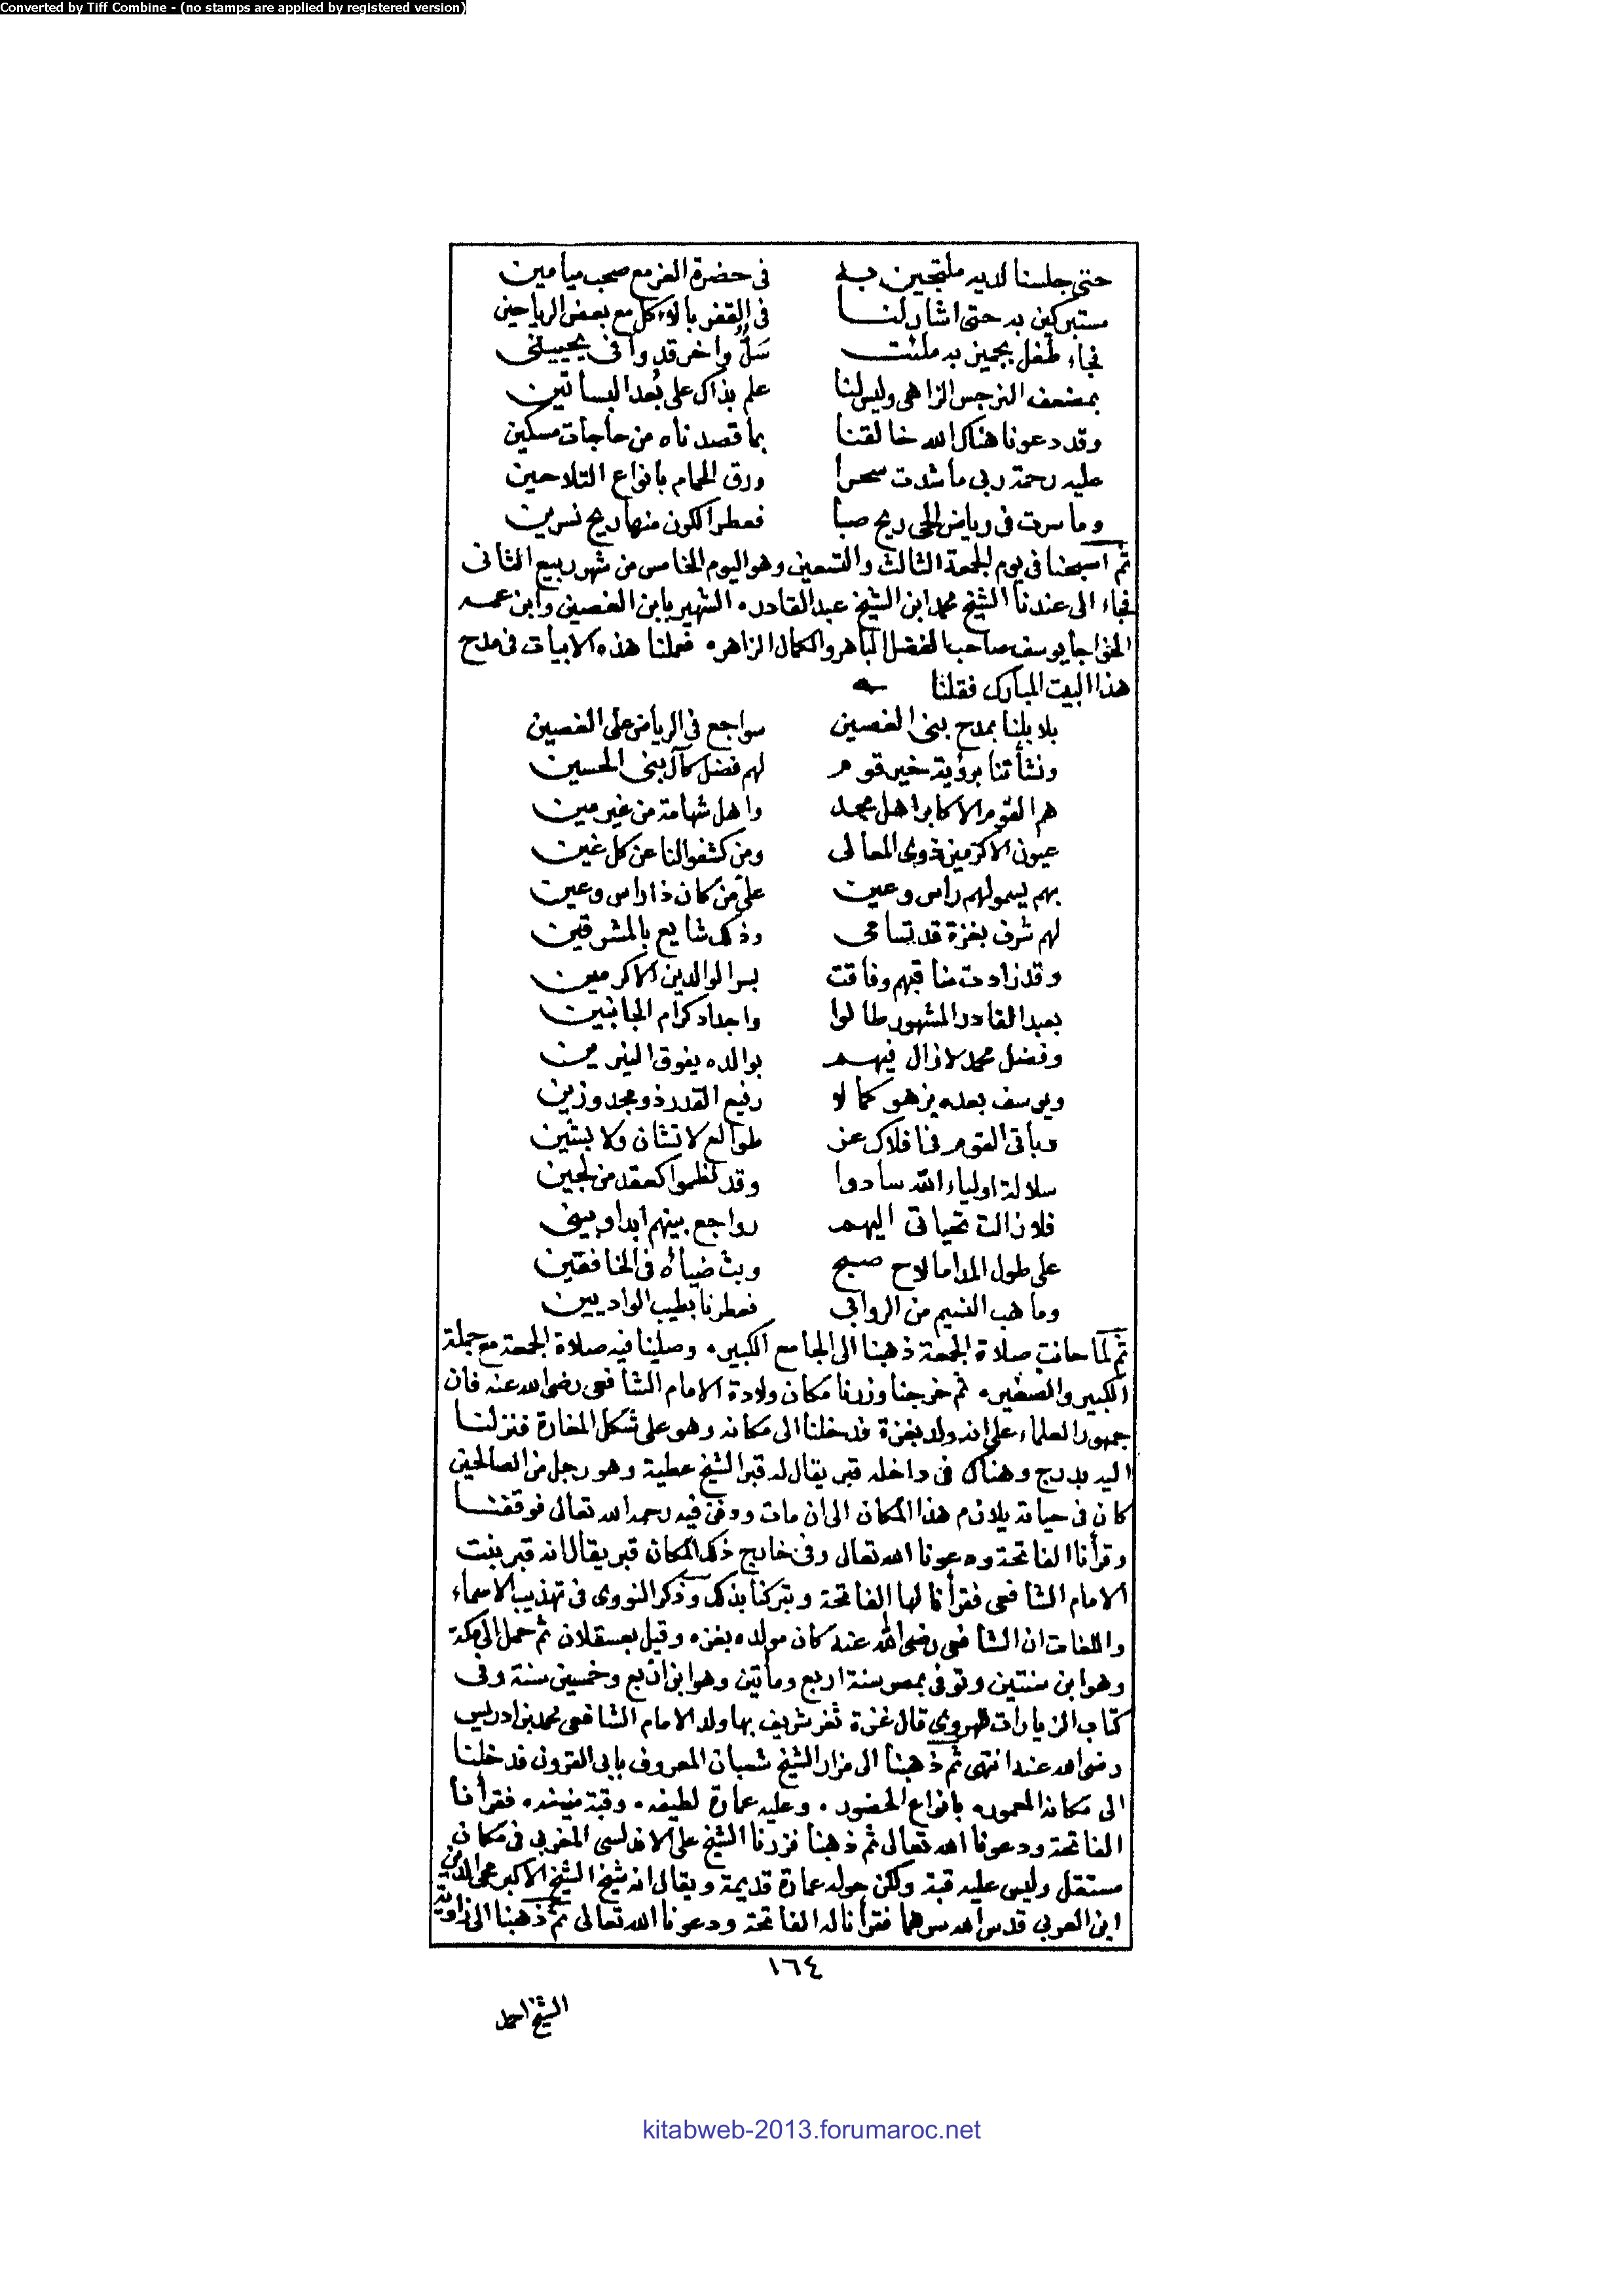 Converted by Tiff Combine - (no stamps are applied by registered version)
حتى جلسنا لديه ملتجين به في حضرة العز مع صحب ميامين
مستبركين به حتى اشار لنا في القفر بالاكل مع بعض الرياحين
فجاء طفل بجمين به ملئت سل واخر قد وافى يحييني
بمضعف النرجس الزاهي وليس لنا علم بذاك على بعد البساتين
وقد دعونا هناك الله خالقنا بما قصدناه من حاجات مسكين
عليه رحمة ربي ما شدت سحرا ورق الحمام بانواع التلاحين
وما سرت في رياض الحي ريح صبا فعطر الكون منها ريح نسرين
ثم اصبحنا في يوم الجمعة الثالث والتسعين وهو اليوم الخامس من شهر ربيع الثاني
فجاء الى عندنا الشيخ محمد ابن الشيخ عبد القادر. الشهير بابن الغصين وابن عمه
الخواجا يوسف صاحب الفضل الباهر والكمال الزاهر. فعملنا هذه الابيات في مدح
هذا البيت المبارك فقلنا
بلابلنا بمدح بني الغصين سواجع في الرياض على الغصين
ونشأتنا برؤية خير قوم لهم فضل كآل بني الحسين
هم القوم الاكابر اهل مجد واهل شهامة من غير مين
عيون الاكرمين ذوي المعالي ومن كشفوا لنا عن كل غين
بهم يسمو لهم راس وعين على من كان ذا راس وعين
لهم شرف بغزة قد تسامى وذلك شايع بالمشرقين
وقد زادت مناقبهم وفاقت بسر الوالدين الاكرمين
بعبد القادر المشهور طالوا واجداد كرام الجانبين
وفضل محمد لا زال فيهم بوالده يفوق النيرين
ويوسف بعده يزهو كمالا رفيع القدر ذو مجد وزين
وباقي القوم في افلاك عز طوالع لا تشان ولا بشين
سلالة اولياء الله سادوا وقد نظموا كعقد من لجين
فلا زالت تحياتي اليهم رواجع بينهم ابدا وبيني
على طول المدا ما لاح صبح وبث ضياؤه في الخافقين
وما هب النسيم من الروابي فعطرنا بطيب الواديين
ثم لما حانت صلاة الجمعة ذهبنا الى الجامع الكبير. وصلينا فيه صلاة الجمعة مع جملة
الكبير والصغير. ثم خرجنا وزرنا مكان ولادة الامام الشافعي رضي الله عنه فان
جمهور العلماء على انه ولد بغزة فدخلنا الى مكانه وهو على شكل المغارة فنزلنا
اليه بدرج وهناك في داخله قبر يقال له قبر الشيخ عطية وهو رجل من الصالحين
كان في حياته يلازم هذا المكان الى ان مات ودفن فيه رحمه الله تعالى فوقفنا
وقرأنا الفاتحة ودعونا الله تعالى وفي خارج ذلك المكان قبر يقال انه قبر بنت
الامام الشافعي فقرأنا لها الفاتحة وتبركنا بذلك وذكر النووي في تهذيب الاسماء
واللغات ان الشافعي رضي الله عنه كان مولده بغزه وقيل بعسقلان ثم حمل الى مكة
وهو ابن سنتين وتوفي بمصر سنة اربع ومأتين وهو ابن اربع وخمسين سنة وفي
كتاب الزيارات للهروي قال غزة ثغر شريف بها ولد الامام الشافعي محمد بن ادريس
رضي الله عنه انتهى ثم ذهبنا الى مزار الشيخ شعبان المعروف بابي القرون فدخلنا
الى مكانه المعمور. بانواع الحضور. وعليه عمارة لطيفه. وقبة منيفه. فقرأنا
الفاتحة ودعونا الله تعالى ثم ذهبنا فزرنا الشيخ علي الاندلسي المغربي في مكان
مستقل وليس عليه قبة ولكن حوله عمارة قديمة ويقال انه شيخ الشيخ الاكبر محي الدين
ابن العربي قدس الله سرهما فقرأنا له الفاتحة ودعونا الله تعالى ثم ذهبنا الى زاوية
١٦٤
الشيخ احمد
kitabweb-2013.forumaroc.net